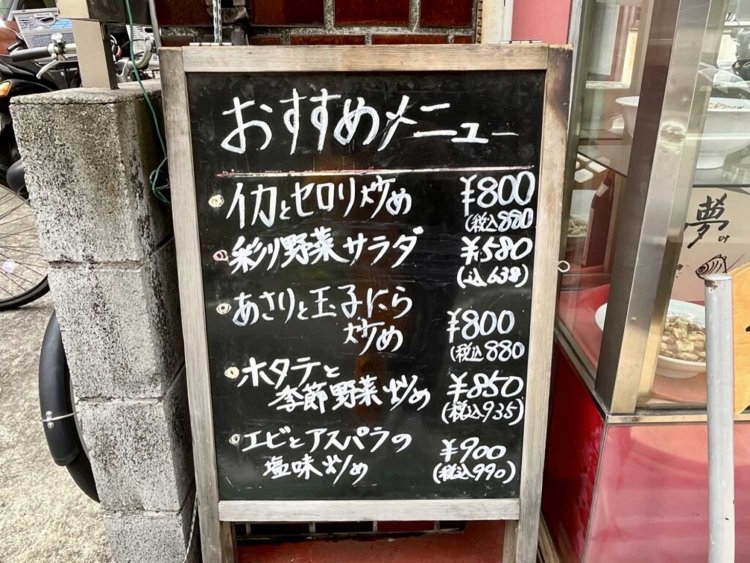 おすすめメニュー
イカとセロリ炒め ¥800
(税込880
彩り野菜サラダ ¥580
(込638)
あさりと玉子にら
炒め ¥800
(税込880
ホタテと
季節野菜炒め ¥850
(税込935)
エビとアスパラの
塩味炒め ¥900
(税込990)
夢